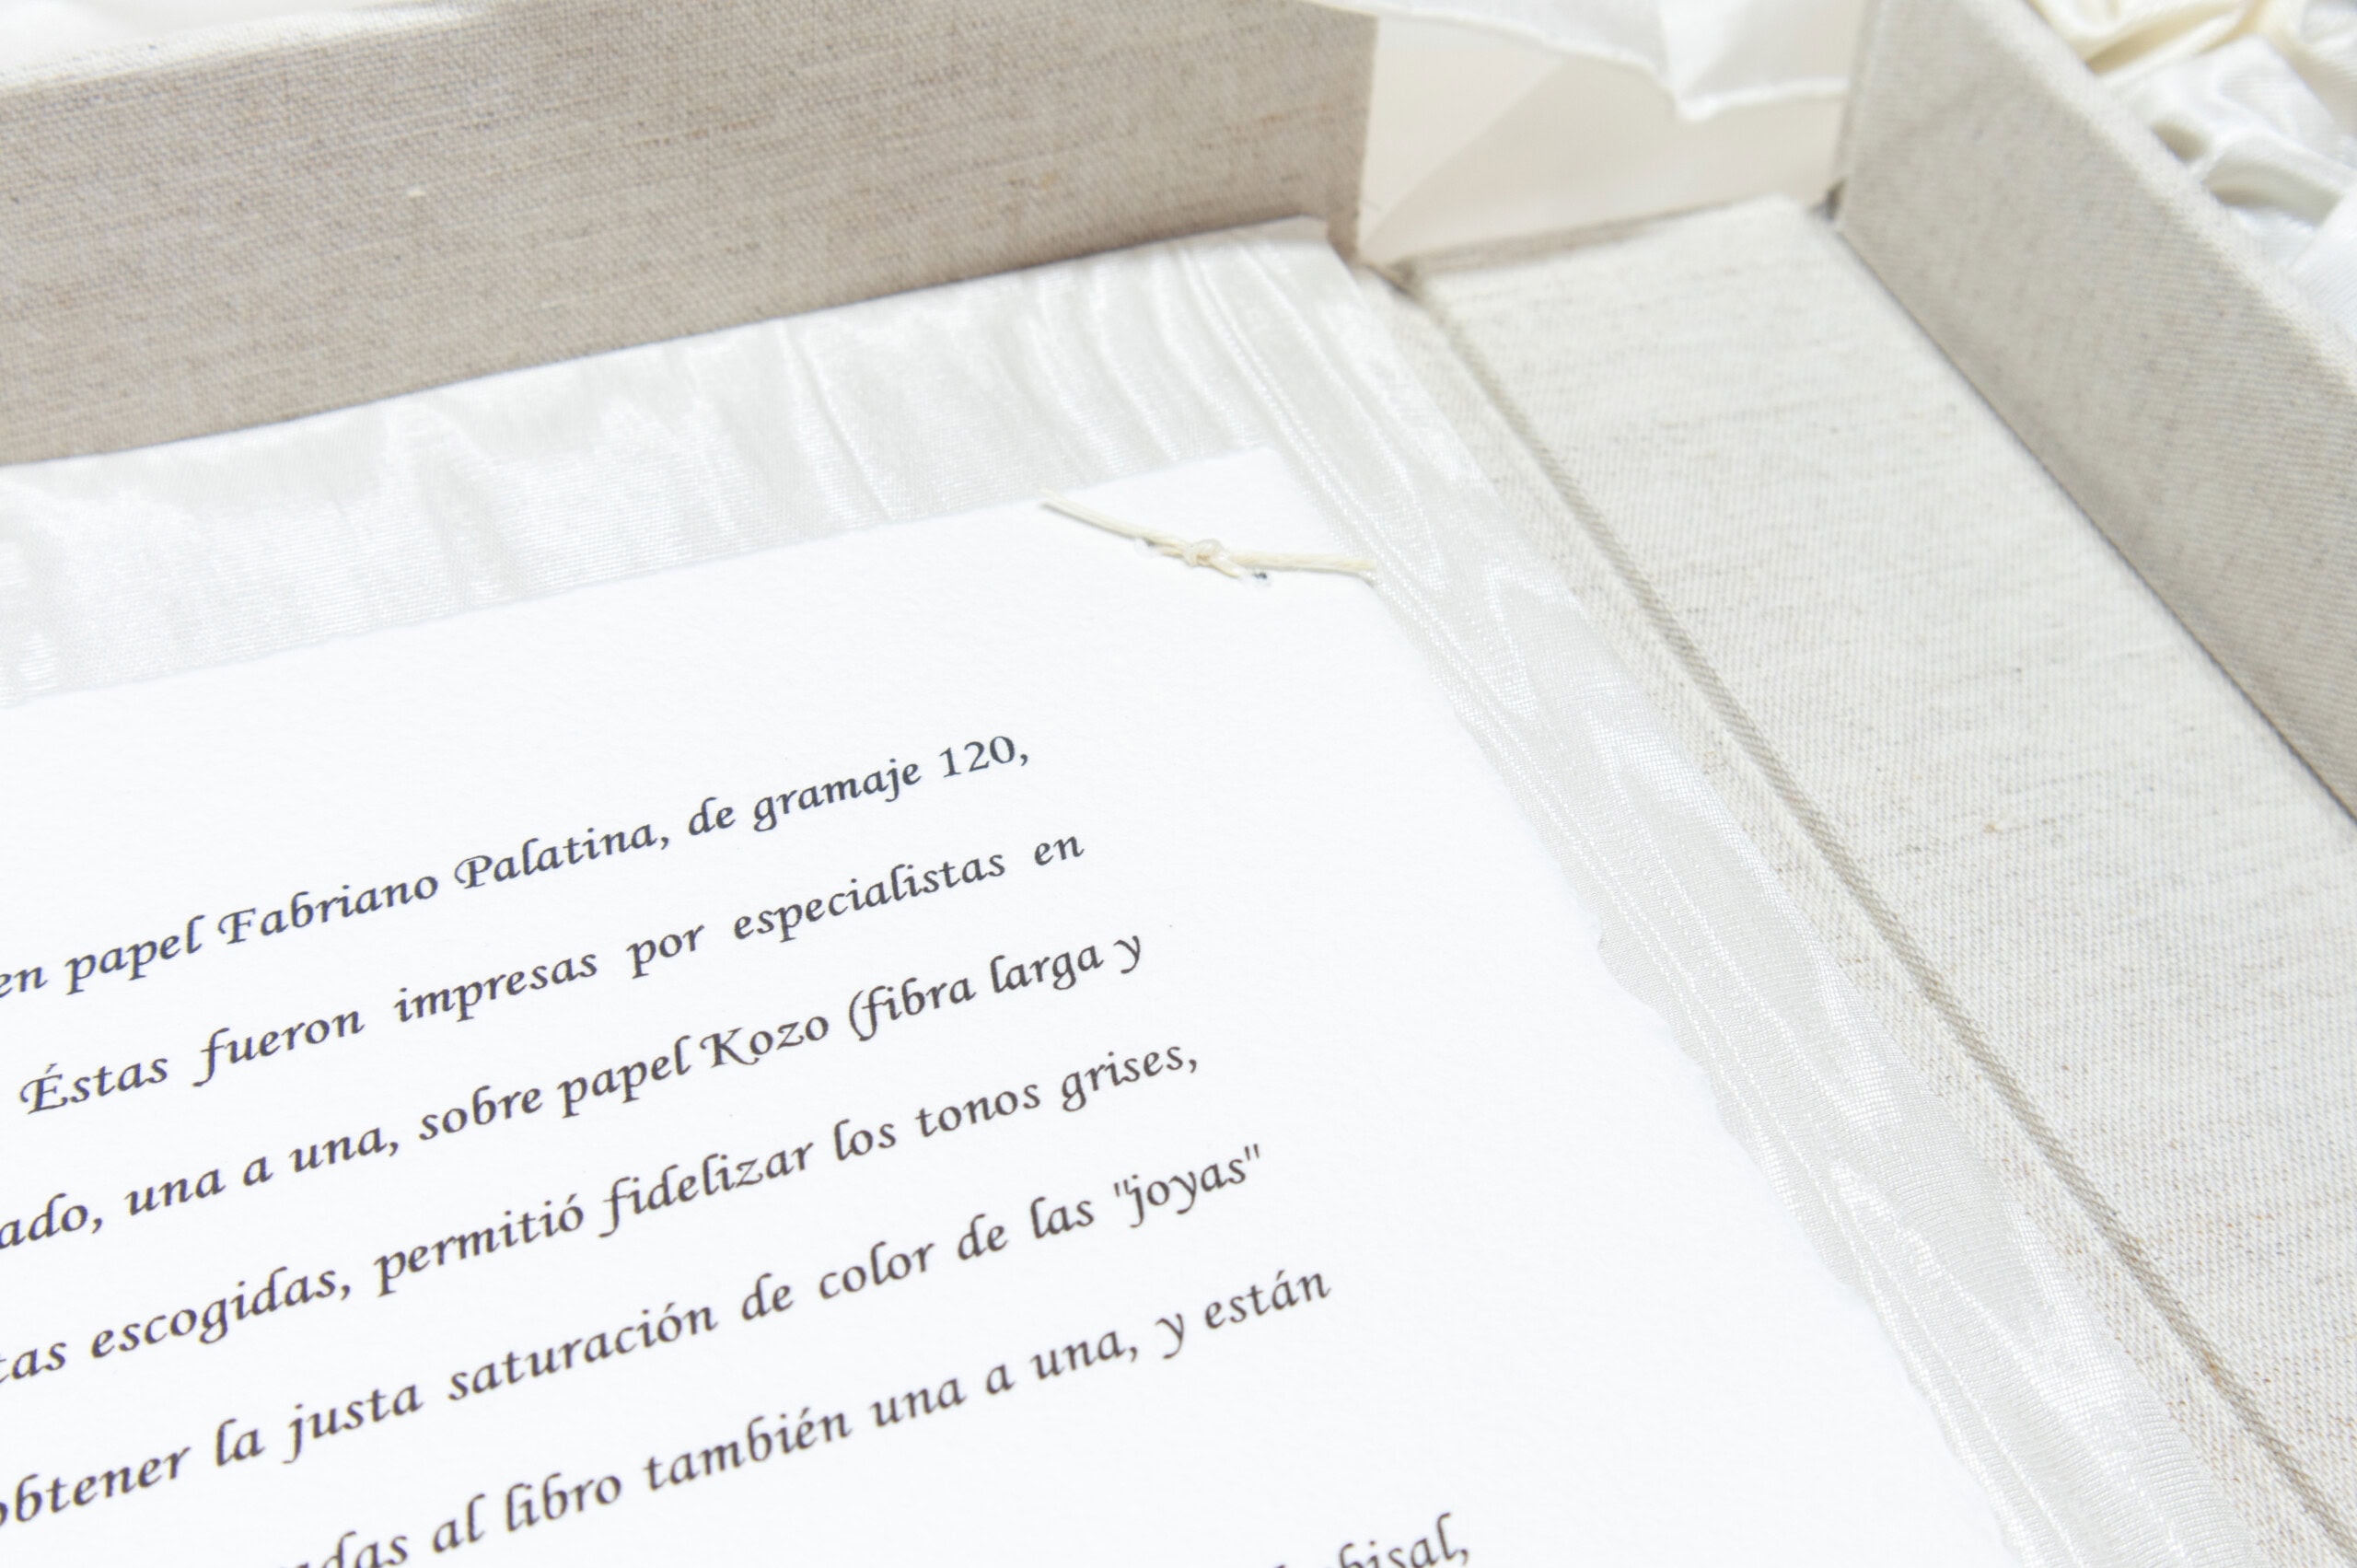 en papel Fabriano Palatina, de gramaje 120,
Éstas fueron impresas por especialistas en
una a una, sobre papel Kozo (fibra larga y
escogidas, permitió fidelizar los tonos grises,
obtener la justa saturación de color de las "joyas"
al libro también una a una, y están